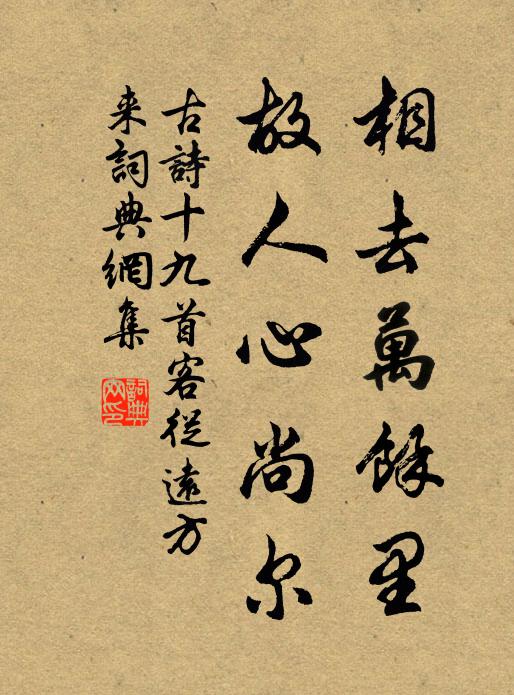 相去萬餘里
故人心尚尔
古詩十九首客從遠方
来詞典網集
詞典
网印